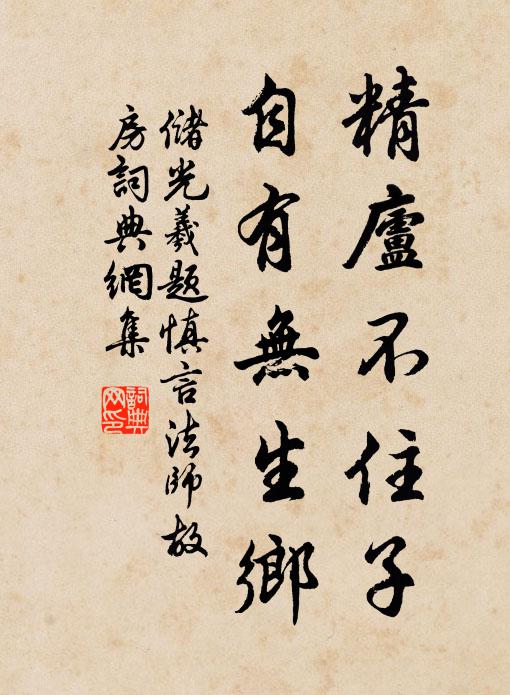 精廬不住子
自有無生鄉
儲光羲題慎言法師故
房詞典網集
詞典
網印